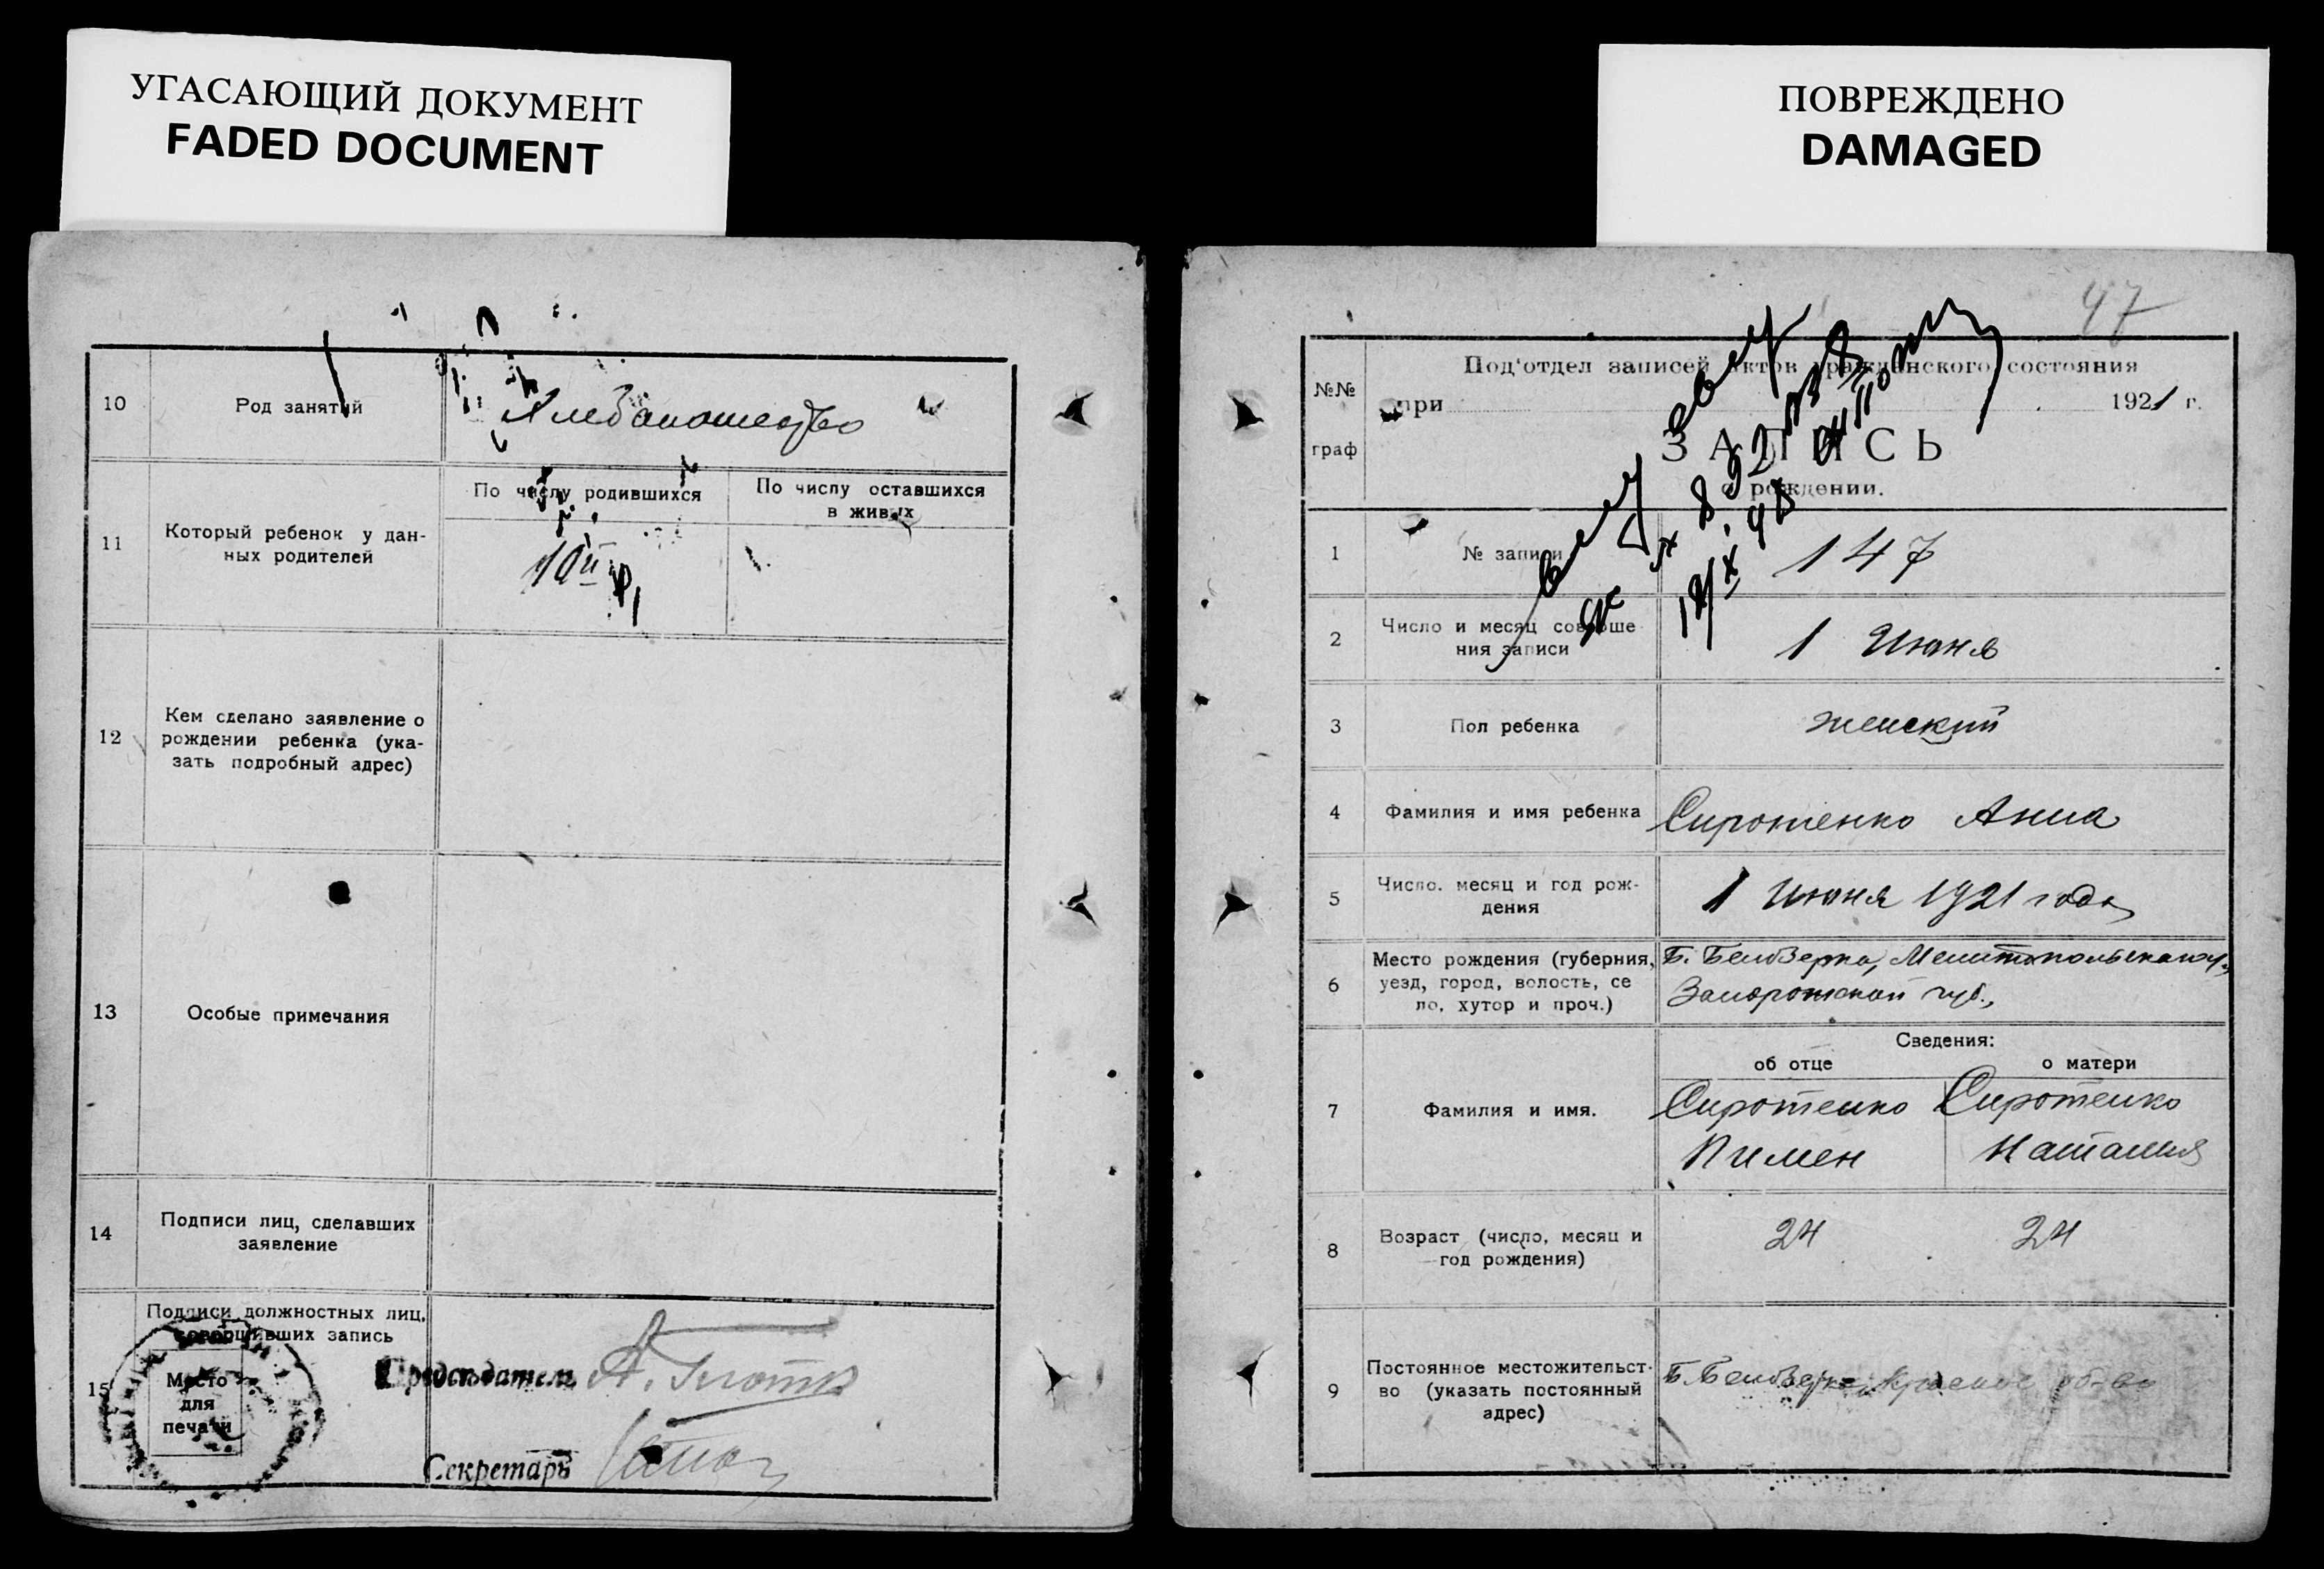 УГАСАЮЩИЙ ДОКУМЕНТ
FADED DOCUMENT
10
Род занятий
Хлебопашество
11
Который ребенок у дан-
ных родителей
По числу родившихся
По числу оставшихся
в живых
12
Кем сделано заявление о
рождении ребенка (ука-
зать подробный адрес)
13
Особые примечания
14
Подписи лиц, сделавших
заявление
15
Подписи должностных лиц,
совершивших запись
Место
для
печати
Предсѣдатель
Секретарь
ПОВРЕЖДЕНО
DAMAGED
47
№№
граф
Под'отдел записей актов гражданского состояния
при 1921 г.
ЗАПИСЬ
о рождении.
1
№ записи
147
2
Число и месяц соверше
ния записи
1 Июня
3
Пол ребенка
женский
4
Фамилия и имя ребенка
Сиротенко Анна
5
Число, месяц и год рож-
дения
1 Июня 1921 года
6
Место рождения (губерния,
уезд, город, волость, се
ло, хутор и проч.)
Б. Белозерка, Мелитопольского у.,
Запорожской губ.,
Сведения:
об отце
о матери
7
Фамилия и имя.
Сиротенко
Пимен
Сиротенко
Наталия
8
Возраст (число, месяц и
год рождения)
24
24
9
Постоянное местожительст-
во (указать постоянный
адрес)
Б. Белозерка